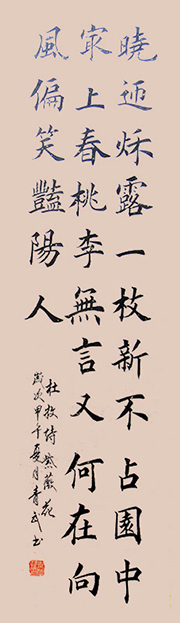 曉迎秋露一枝新不占園中
最上春桃李無言又何在向
風偏笑豔陽人
杜牧詩紫薇花
歲次甲午夏月青武書